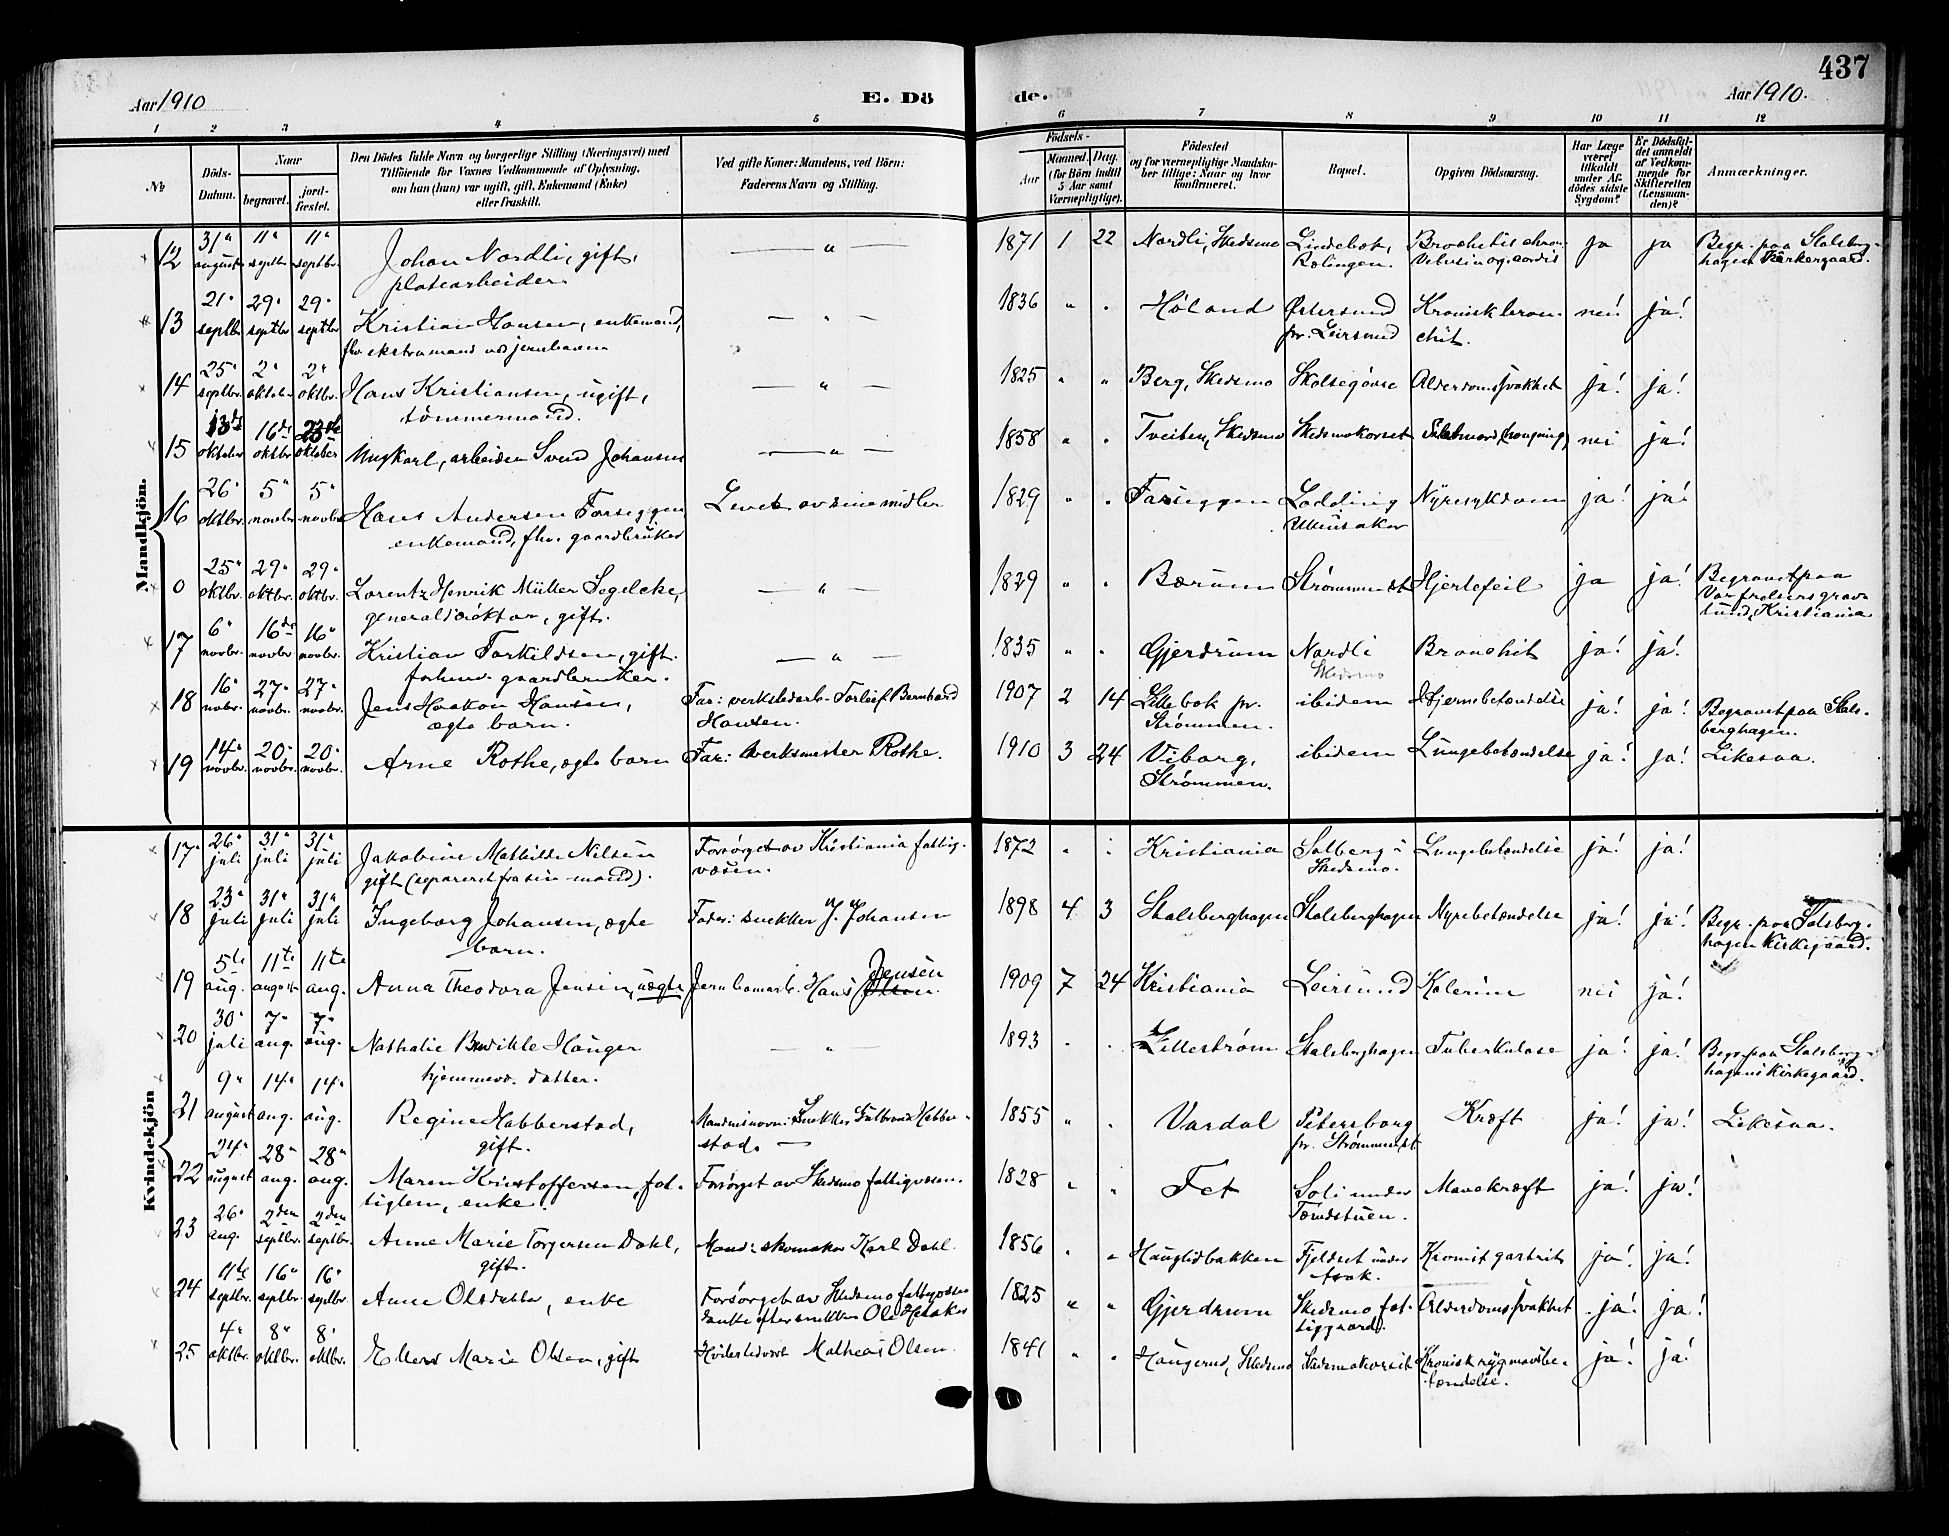 437
Aar 1910
E. Dö
de.
Aar 1910.
1 2 3 4 5 6 7 8 9 10 11 12
No
Döds-
Datum.
Naar
begravet.
jord-
fæstet.
Den Dödes fulde Navn og borgerlige Stilling (Næringsvei) med
Tilföiende for Voxnes Vedkommende af Oplysning,
om han (hun) var ugift, gift, Enkemand (Enke)
eller fraskilt.
Ved gifte Koner: Mandens, ved Börn:
Faderens Navn og Stilling.
Födsels-
Aar
Maaned. Dag.
(for Börn indtil
5 Aar samt
Værnepligtige).
Födested
og for værnepligtige Mandska-
ber tillige: Naar og hvor
konfirmeret.
Bopæl.
Opgiven Dödsaarsag.
Har Læge
været
tilkaldt
under Af-
dödes sidste
Sygdom?
Er Dödsfal-
det anmeldt
af Vedkom-
mende for
Skifteretten
(Lensman-
den)?
Anmærkninger.
Mandkjön.
12 31" august 11" septbr. 11" septbr. Johan Nordli, gift,
platearbeider.
— " — 1871 1 22 Nordli, Skedsmo
Rælingen. ja ja Begr. paa Stalsberg-
hagen Kirkegaard.
13 21" septbr 29" septbr 29" septbr Kristian Hansen, enkemand,
fhv. ekstramand ved jernbanen
— " — 1836 " " Høland Østersund
pr. Leirsund
Kronisk bron-
chit.
nei! ja!
14 25" septbr. 2" oktober 2" oktbr. Hans Kristiansen, ugift,
tømmermand.
— " — 1825 " " Berg, Skedsmo Alderdomssvakhet ja! ja!
15 13de oktober 16de oktbr 23de oktober Ungkarl, arbeider Svend Johansen — " — 1858 " " Tveiten, Skedsmo Skedsmokorset Selvmord (hængning) nei ja!
16 26" oktbr. 5" novbr 5" novbr Hans Andersen Farseggen
enkemand, fhv. gaardbruker
Levet av sine midler 1829 " " Farseggen Lodding
Ullensaker
Nyresykdom ja! ja!
0 25" oktbr. 29" oktbr. 29" oktbr. Lorentz Henrik Müller Segelcke,
generaldirektør, gift.
— " — 1829 " " Bærum Strømmen st Hjertefeil ja ja! Begravet paa
Vor frelsers grav-
lund, Kristiania
17 6" novbr. 16de novbr. 16" novbr. Kristian Torkildsen, gift.
forhenv. gaardbruker.
— " — 1835 " " Gjerdrum Nordli
Skedsmo
Bronchit ja! ja!
18 16" novbr. 27" novbr. 27" novbr. Jens Haakon Hansen,
ægte barn.
Far: verkstedarb. Torleif Bernhard
Hansen.
1907 2 14 Lillebok pr.
Strømmen.
ibidem Hjernebetændelse ja! ja! Begravet paa Stals-
berghagen.
19 14" novbr. 20" novbr. 20" novbr. Arne Rothe, ægte barn Far: Verksmester Rothe. 1910 3 24 Viborg,
Strømmen.
ibidem Lungebetændelse ja! ja! Likesaa.
Kvindekjön
17" 26" juli 31" juli 31" juli Jakobine Mathilde Nilsen
gift (separeret fra sin mand).
Forsørget av Kristiania fattig-
væsen.
1872 " " Kristiania Solberg i
Skedsmo.
Lungebetændelse ja! ja!
18 23" juli 31" juli 31" juli Ingeborg Johansen, ægte
barn.
Fader: snekker J. Johansen 1898 4 3 Stalsberghagen Stalsberghagen Nyrebetændelse ja! ja! Begr. paa Stalsberg-
hagen Kirkegaard.
19 5te aug. 11te august 11te aug. Anna Theodora Jensen, uægte Jernbanearb. Hans Olsen. Jensen
1909 7 24 Kristiania Leirsund Kolerine nei ja!
20 30" juli 7" aug. 7" aug. Nathalie Haugen
hjemmev. datter.
— " — 1893 " " Lillestrøm Stalsberghagen Tuberkulose ja! ja! Begr. paa Stalsberg-
hagens Kirkegaard.
21 9" august 14" aug. 14" aug. Regine Habberstad,
gift.
Mandens navn: Snekker Gulbrand Habber-
stad. —
1855 " " Vardal Petersborg
pr. Strømmen st
Kræft ja! ja! Likesaa.
22 24" august 28" aug. 28" aug. Maren Kristoffersen, fat-
tiglem, enke.
Forsørget av Skedsmo fattigvæsen. 1828 " " Fet Soli under
Tændstuen.
Mavekræft ja! ja!
23 26" aug. 2den septbr. 2den septbr. Anne Marie Torgersen Dahl,
gift.
Mand: skomaker Karl Dahl. 1856 " " Hauglidbakken Fjeldset under
Asak.
Kronisk gastrit ja! ja!
24 11te septbr. 16" septbr. 16" septbr. Anne Olsdatter, enke Forsørget av Skedsmo fattigvæsen
enke efter snekker Ole
1825 " " Gjerdrum Skedsmo fat-
tiggaard.
Alderdomssvakhet ja! ja!
25 4" oktbr. 8" oktbr. 8" oktbr. Ellen Marie Olsen, gift Mathias Olsen. 1841 " " Haugerud, Skedsmo Skedsmokorset Kronisk rygmarvsbe-
tændelse.
ja! ja!